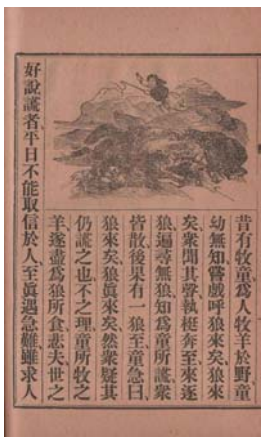 昔有牧童、爲人牧羊於野、童
幼無知、嘗戲呼狼來矣、狼來
矣、衆聞其聲、執梃奔至、來逐
狼、遍尋無狼、知爲童所謊、衆
皆散、後果有一狼至、童急曰、
狼來矣、狼眞來矣、然衆疑其
仍謊之也、不之理、童所牧之
羊、遂盡爲狼所食、悲夫、世之
好說謊者、平日不能取信於人、至眞遇急難、雖求人